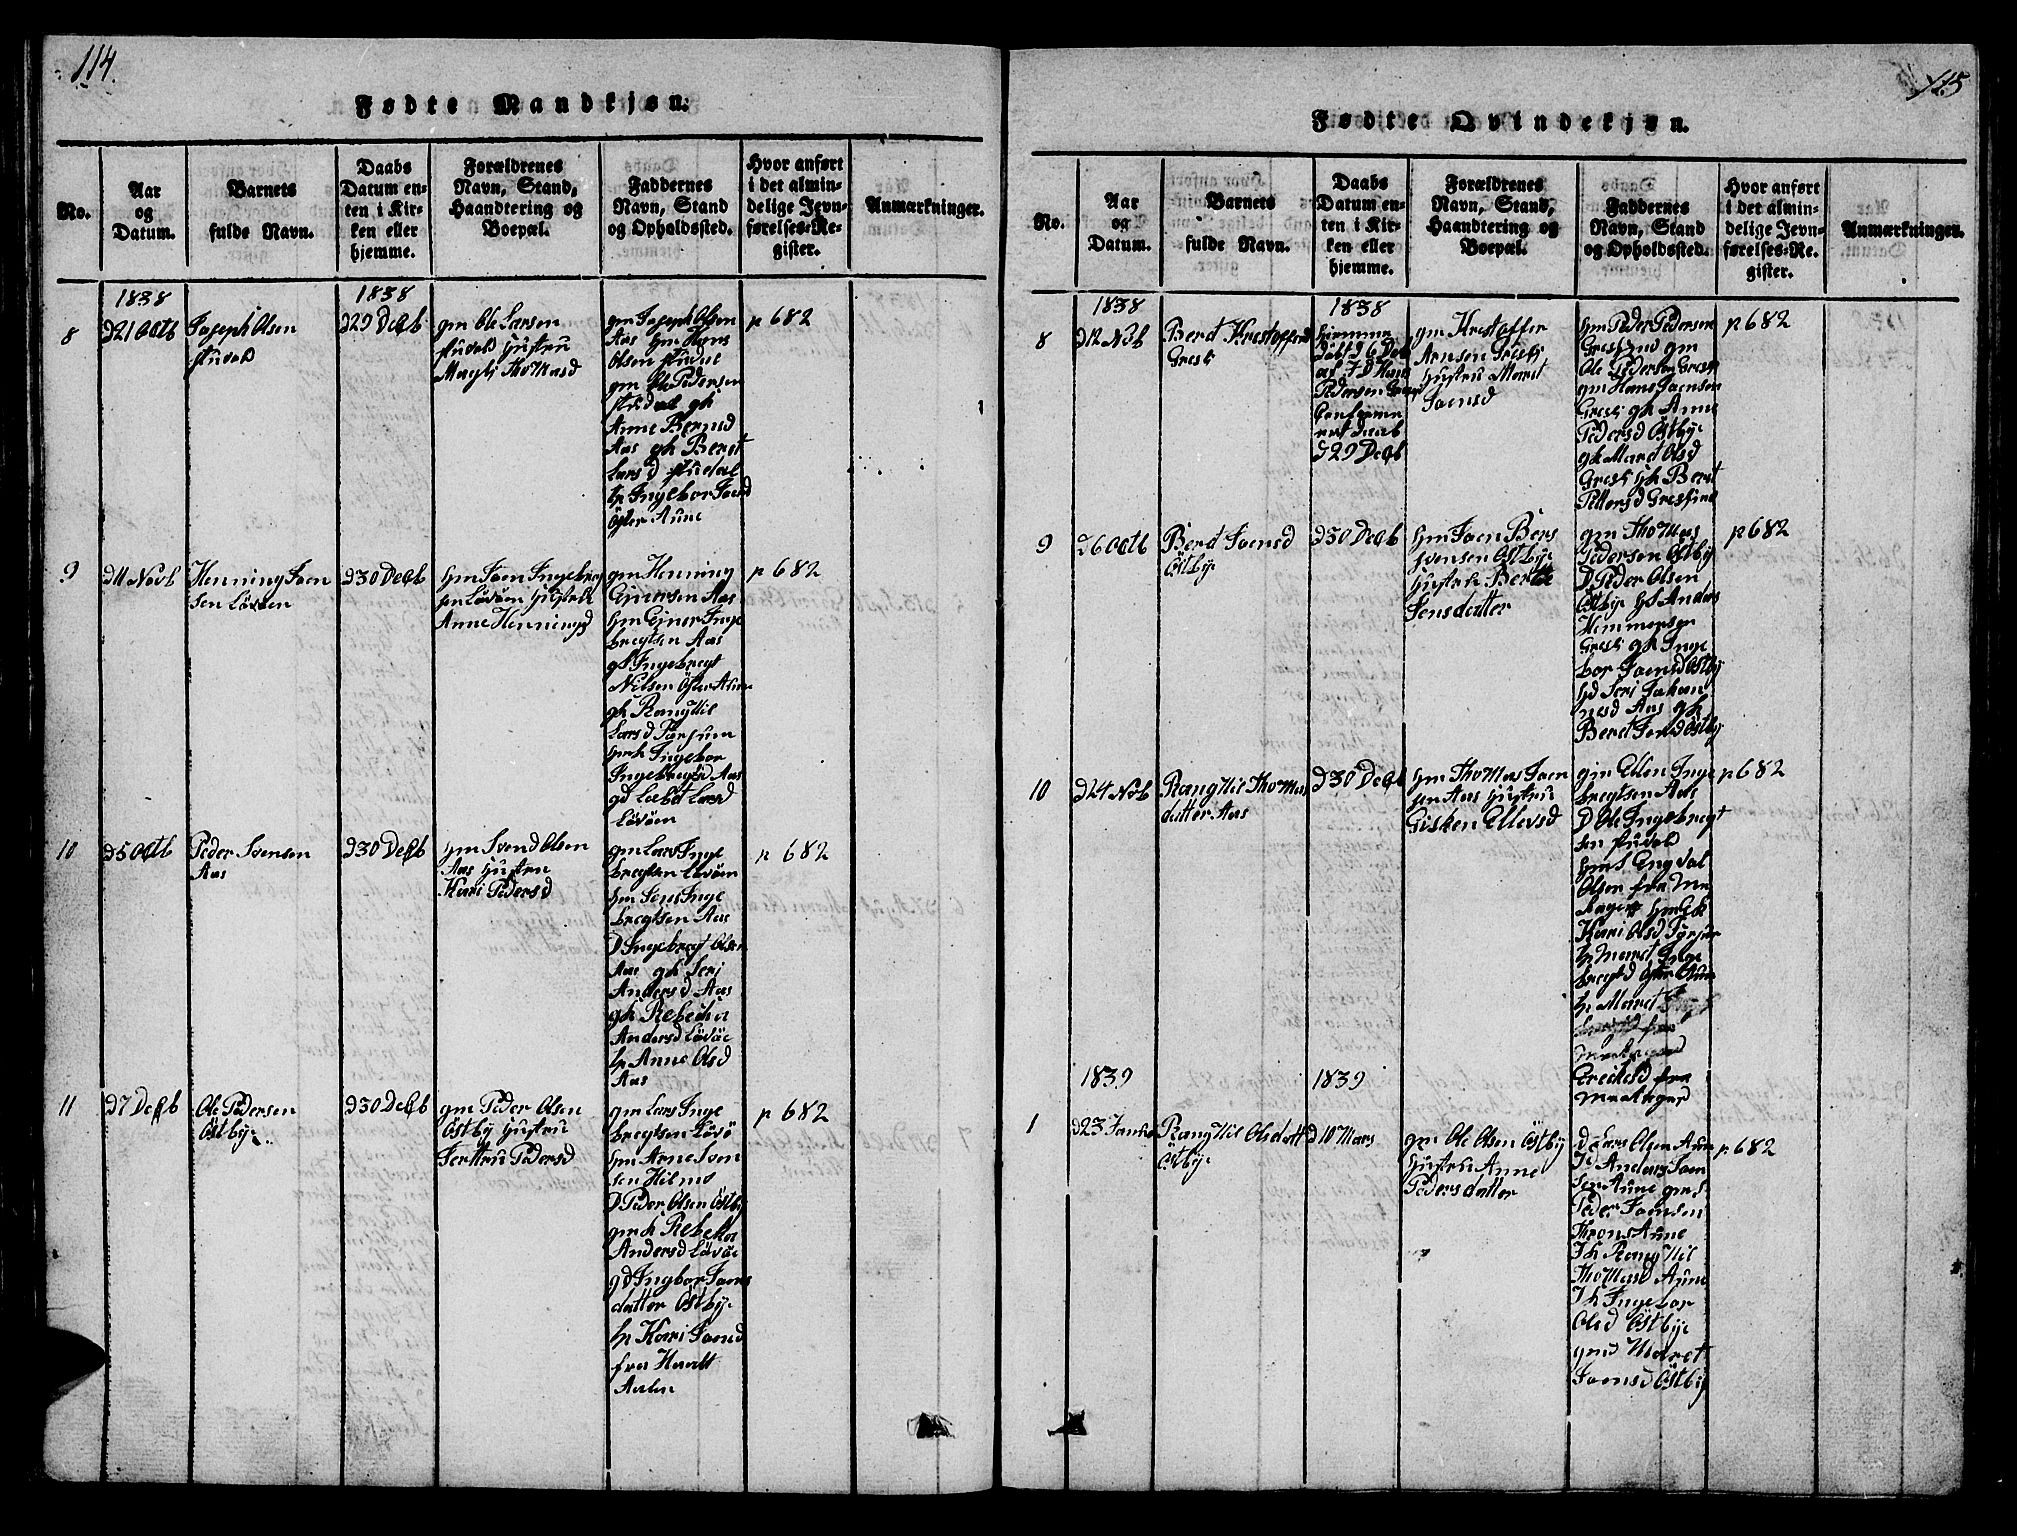 114.
Fødte Mandkjøn.
No.
Aar
og
Datum.
Barnets
fulde Navn.
Daabs
Datum en-
ten i Kir-
ken eller
hjemme.
Forældrenes
Navn, Stand,
Haandtering og
Boepæl.
Faddernes
Navn, Stand
og Opholdssted.
Hvor anført
i det almin-
delige Jevn-
førelses-Re-
gister.
Anmærkninger.
8
1838
d21 Octb
Joseph Olsen
stuedal
1838
d29 Decb
gm Ole Larsen
stuedal Hustru
Thomasd
gm Joseph Olsen
Aas hm Hans
Olsen
gm Ole Pedersen
gk
Anne Berntd
Aas gk Beret
Larsd stuedal
hp Ingebor Joensd
Öster Aune
p 682
9
d11 Novb
Henning Joen
sen Lövöen
d30 Decb
hm Joen Ingebreg
sen Lövöen Hustru
Anne Henningsd
gm Henning
Ejnersen Aas
hm Ejner Inge
bregtsen Aas
Ingebregt
Nilsen Öster Aune
gk Rangttil
Larsd
Ingebor
Ingebregtsd Aas
gd Larsd
Lövöen
p 682
10
d5 Octb
Peder Svensen
Aas
d30 Decb
hm Svend Olsen
Aas Hustru
Kari Pedersd
gm Lars Inge
bregtsen Lövöen
hm Jens Inge
bregtsen Aas
D Ingebregt Olsen
Aas gk Serj
Andersd Aas
gk Rebecka
Andersd Lövöe
hp Anne Olsd
Aas
p 682
11
d7 Decb
Ole Pedersen
Östbye
d30 Decb
gm Peder Olsen
Östby Hustru
Pedersd
gm Lars Inge
bregtsen Lövö
hm Arne Sven
sen Hilmo
D Peder Olsen Östby
gmk Rebekka
Andersd Lövöe
gd Ingbor Joens
datter Östbye
hp Kari Joensd
fra Haalt
Aalen
p 682
115
Fødte Qvindekjøn.
No.
Aar
og
Datum.
Barnets
fulde Navn.
Daabs
Datum en-
ten i Kir-
ken eller
hjemme.
Forældrenes
Navn, Stand,
Haandtering og
Boepæl.
Faddernes
Navn, Stand
og Opholdssted.
Hvor anført
i det almin-
delige Jevn-
førelses-Re-
gister.
Anmærkninger.
8
1838
d12 Nvb
Berd
Gresli
1838
hjemme
döbt d 6 Deb
af
Pedersen
Confirme
ret daab
d29 Decb
gm Krestoffer
Arnsen Gresli
Hustru Maret
Joensd
hm Peder Pedersen
gm
Ole Pedersen Gresli
gm Hans Joensen
Gresli gk Anne
Pedersd Östbye
gk Maret Olsd
Gresli gk Beret
Pedersd
p 682
9
d6 Octb
Berd Joensd
Östbye
d30 Decb
hm Joen Bers
svensen Östbye
Hustru Beret
Jensdatter
gm Thommas
Pedersen Östby
D Peder Olsen
Östbye Anders
Hemmersen
Gresli gk Inge
bor Joensd Östby
Serj Johan
nesd Aas gk
Beret Jensd Östby
p 682
10
d24 Nvb
Rangttil Thommas
datter Aas
d30 Decb
hm Thommas Joen
sen Aas Hustru
Gisken Ellevsd
gm Ellen Inge
bregtsen Aas
D Ole Ingebregt
sen stuedal
Engdal
Olsen fra
Kari Olsd
hp Maret Inge
bregtd Öster Aune
hp Maret
p 682
1
1839
d23 Janua
Rangttil Olsdatt
Östbye
1839
d10 Mars
gm Ole Olsen Östby
Hustru Anne
Pedersdatter
d Lars Olsen Aune
Jd Anders Joen
sen Aune gmd
Peder Joensen
Aune
Jk Rangttil
Thommasd Aune
Jk Ingebor
Olsd Östbye
gmd Maret
Joensd Östby
p 682